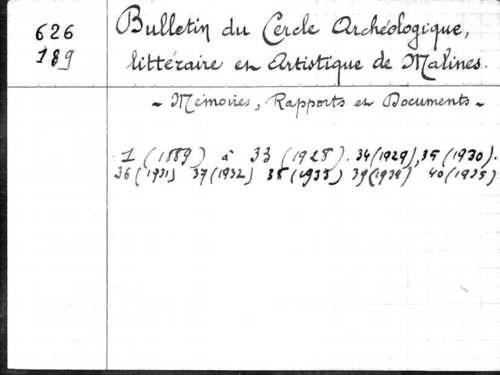 626
189
Bulletin du Cercle Archéologique,
littéraire et Artistique de Malines.
~ Mémoires, Rapports et Documents ~
1 (1889) à 33 (1928). 34 (1929), 35 (1930).
36 (1931) 37 (1932) 38 (1933) 39 (1934) 40 (1935)